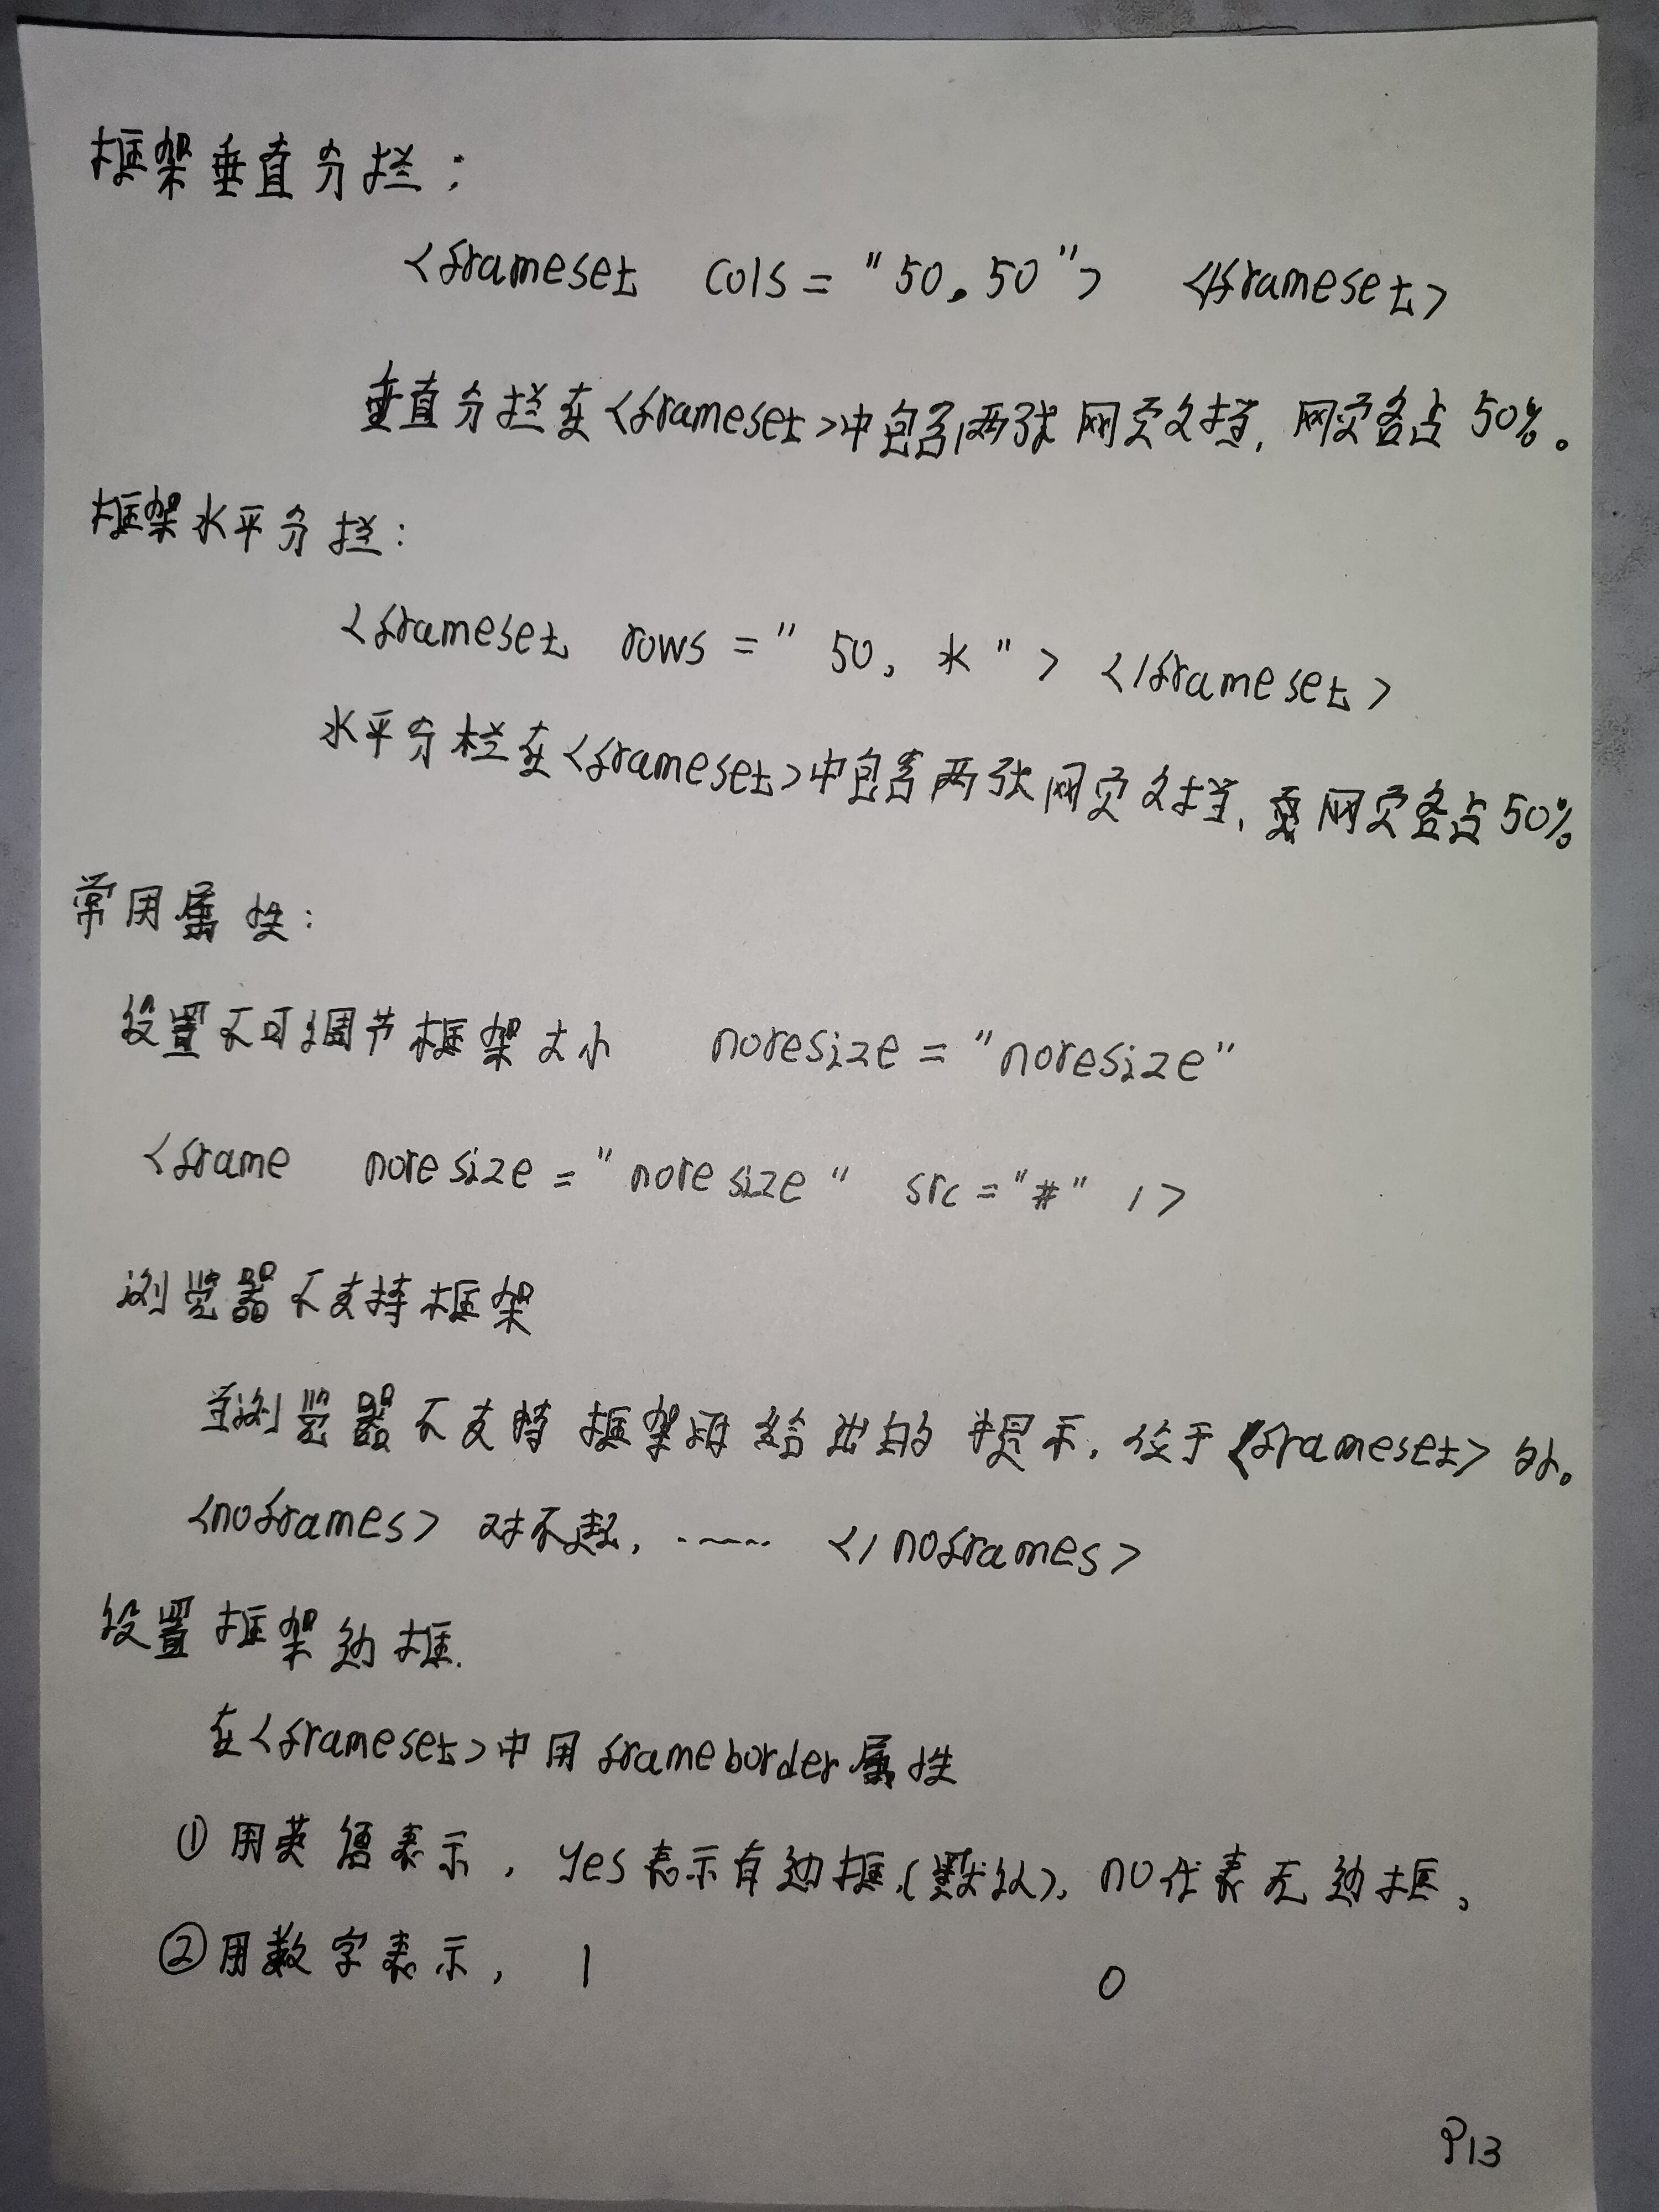 框架垂直分栏:
<frameset cols="50,50"> </frameset>
垂直分栏在<frameset>中包含两张网页文档,网页各占50%。
框架水平分栏:
<frameset rows="50,*"> </frameset>
水平分栏在<frameset>中包含两张网页文档,网页各占50%
常用属性:
设置不可调节框架大小 noresize="noresize"
<frame noresize="noresize" src="#" />
浏览器不支持框架
当浏览器不支持框架时给出的提示,位于<frameset>外。
<noframes> 对不起,…… </noframes>
设置框架边框.
在<frameset>中用frameborder属性
①用英语表示,yes表示有边框(默认),no代表无边框,
②用数字表示, 1 0
P13